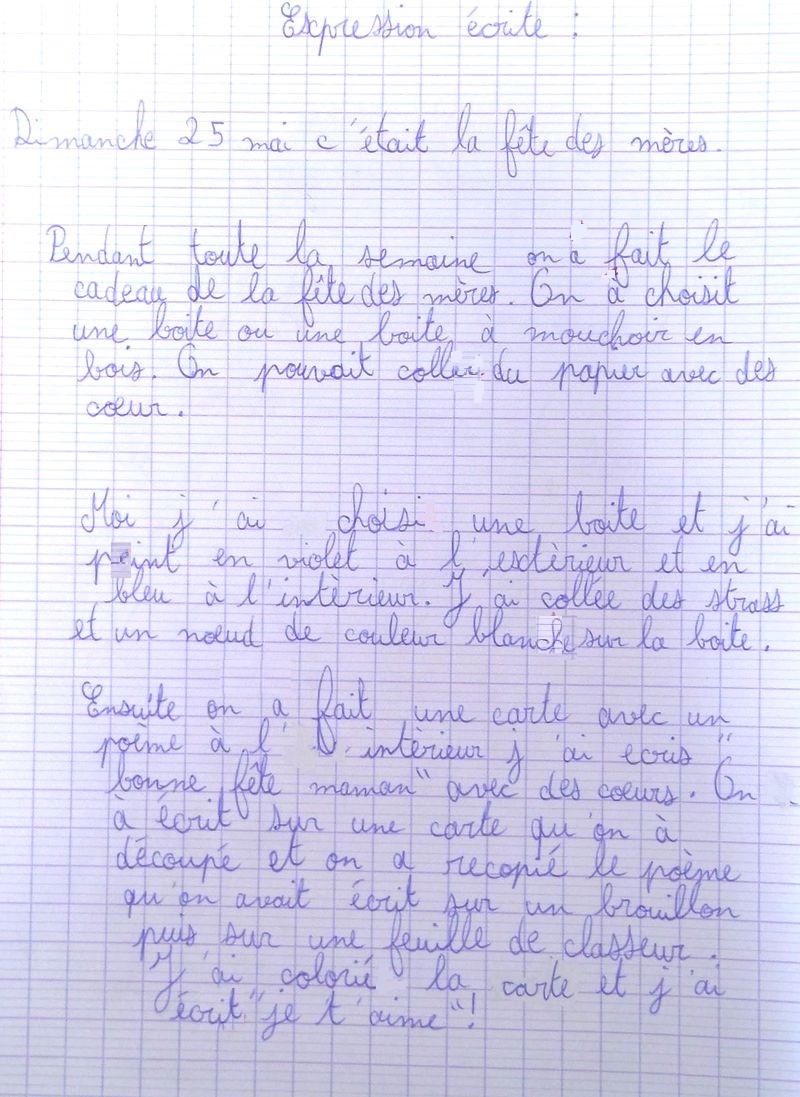 Expression écrite :
Dimanche 25 mai c'était la fête des mères.
Pendant toute la semaine on a fait le
cadeau de la fête des mères. On à choisit
une boite ou une boite à mouchoir en
bois. On pouvait coller du papier avec des
cœur.
Moi j'ai choisi une boite et j'ai
peint en violet à l'extèrieur et en
bleu à l'intèrieur. J'ai collée des strass
et un nœud de couleur blanche sur la boite.
Ensuite on a fait une carte avec un
poème à l'intèrieur j'ai ecris "
bonne fête maman" avec des coeurs. On
à écrit sur une carte qu'on à
découpé et on a recopié le poème
qu'on avait écrit sur un brouillon
puis sur une feuille de classeur.
J'ai colorié la carte et j'ai
écrit "je t'aime"!